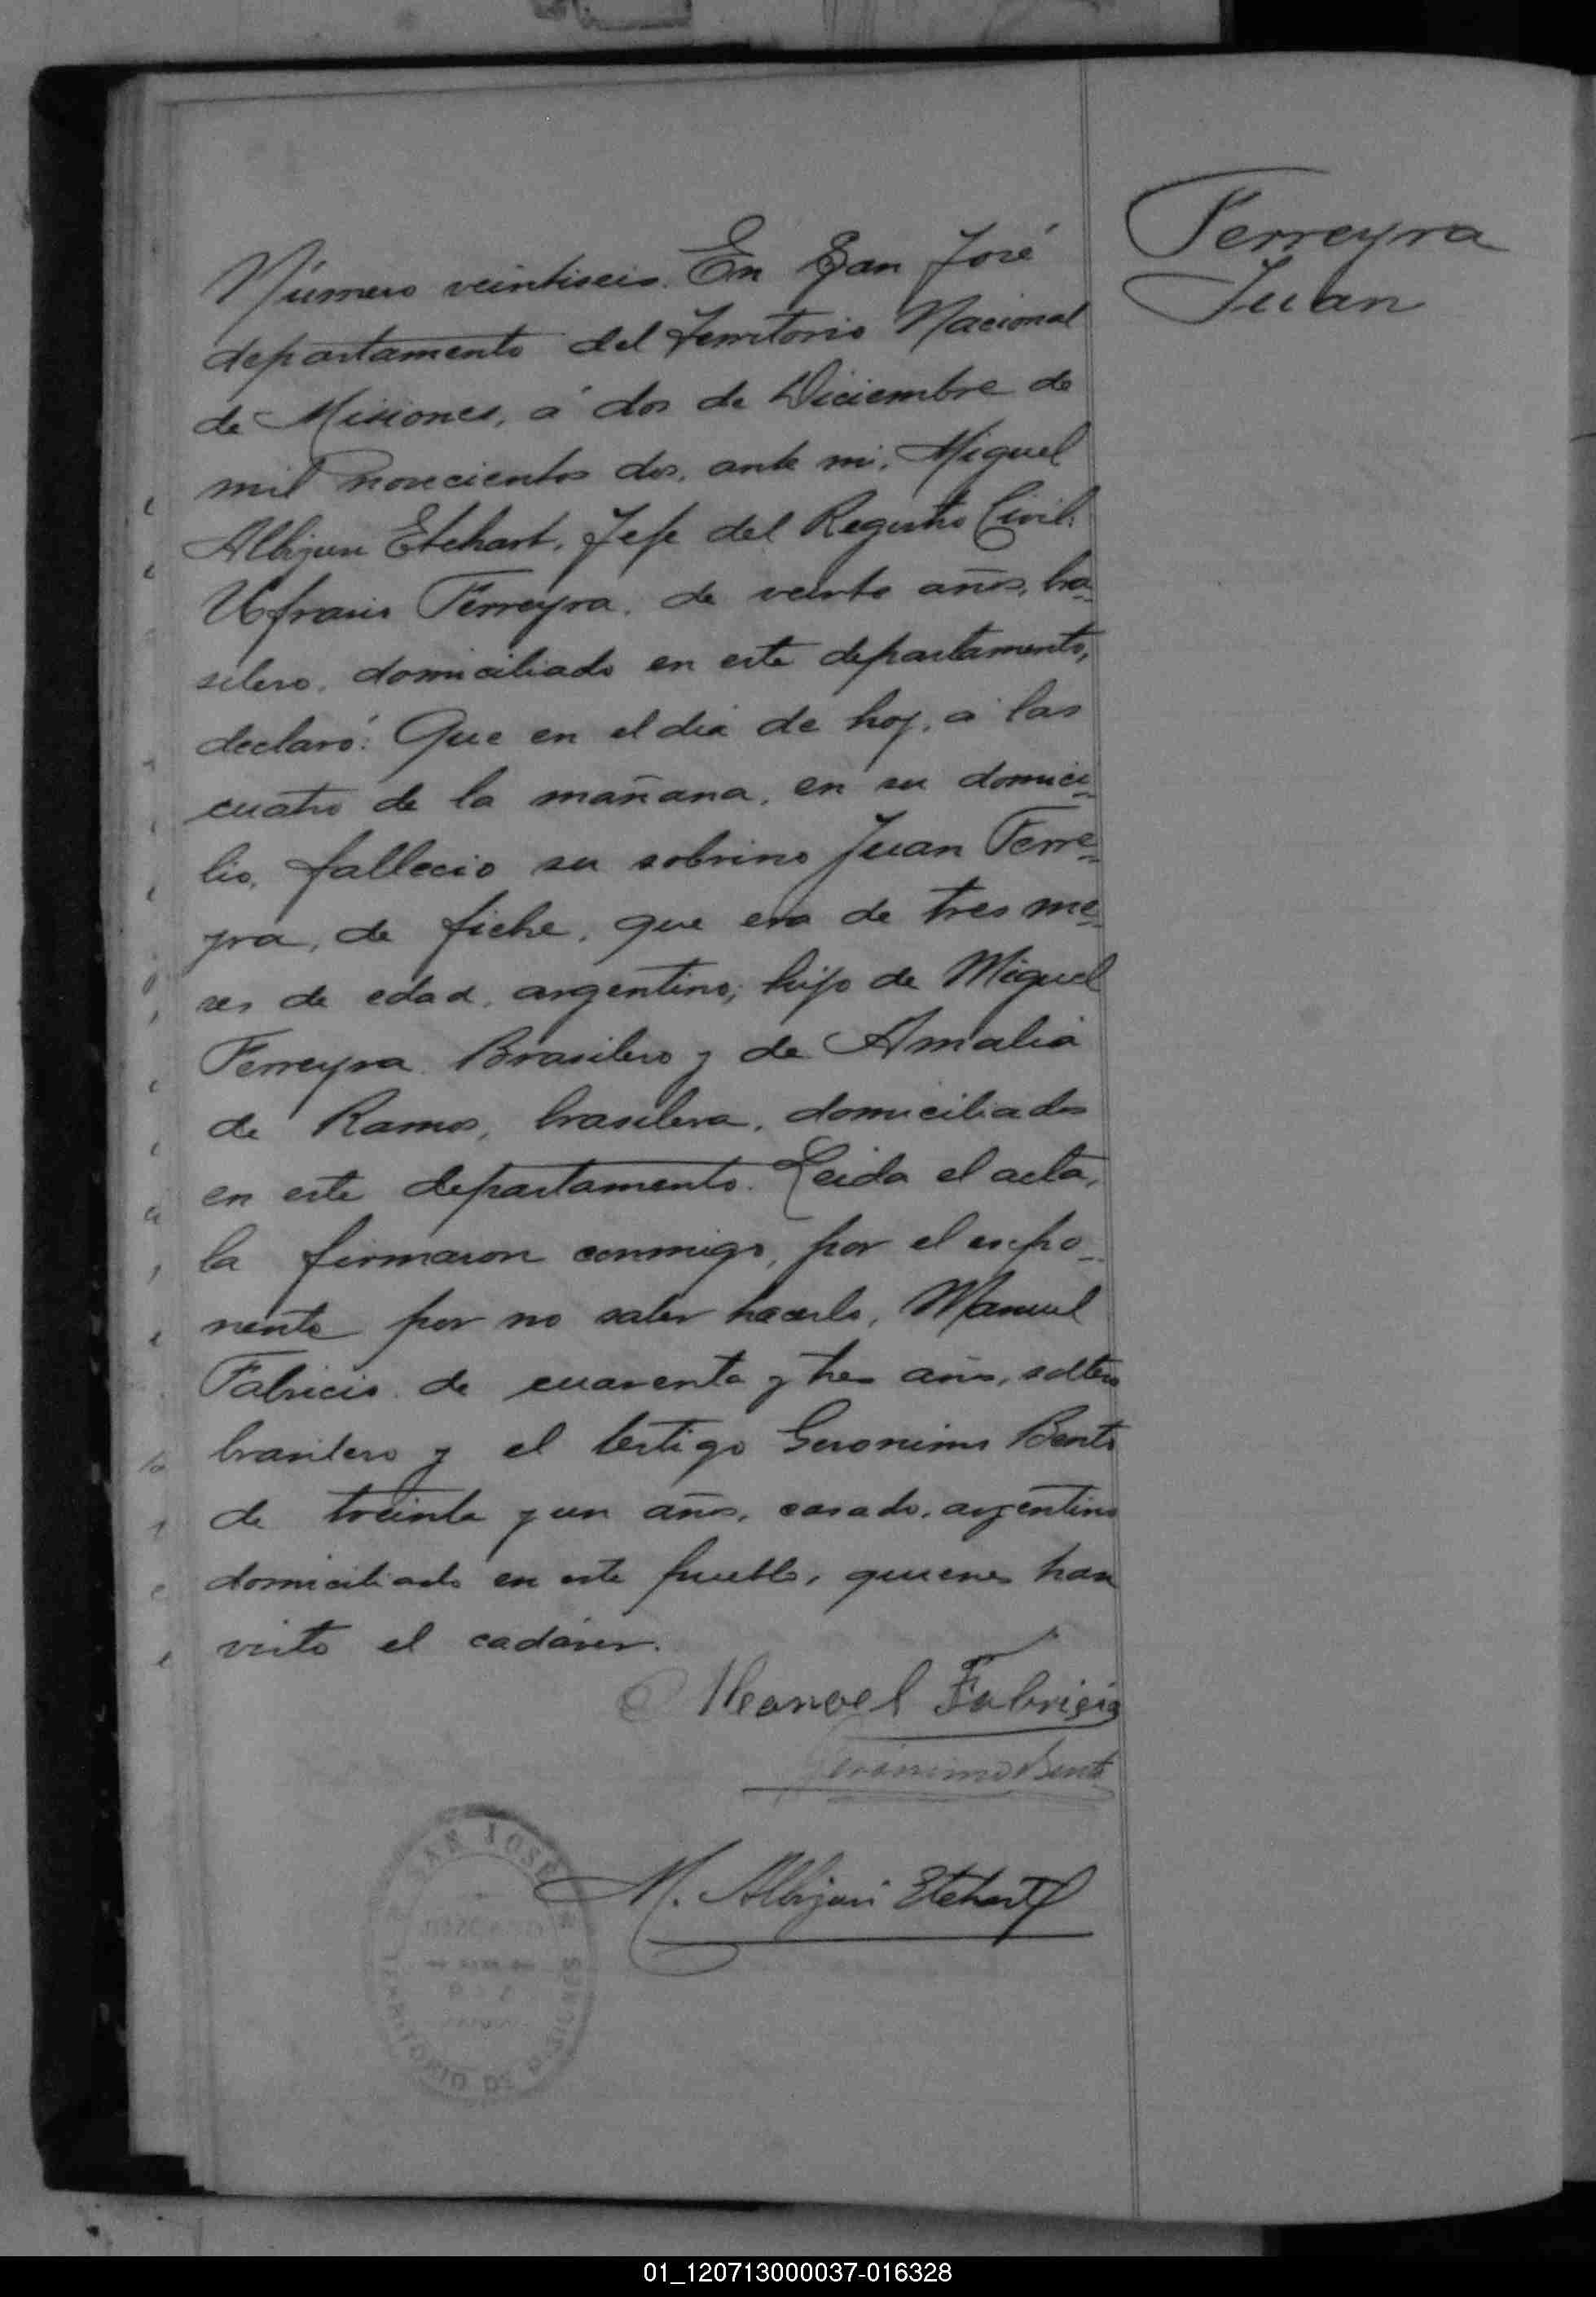 Ferreyra
Juan
Número veintiseis. En San José
departamento del Territorio Nacional
de Misiones, á dos de Diciembre de
mil novecientos dos, ante mi, Miguel
Albijuri Etchart, Jefe del Registro Civil.
Ferreyra, de veinte años, bra-
silero, domiciliado en este departamento,
declaró: Que en el dia de hoy, a las
cuatro de la mañana, en su domici-
lio, fallecio su sobrino Juan Ferre-
yra, de fiebre, que era de tres me-
ses de edad, argentino; hijo de Miguel
Ferreyra Brasilero y de Amalia
de Ramos, brasilera, domiciliados
en este departamento. Leida el acta,
la firmaron conmigo, por el expo-
nente por no saber hacerlo, Manuel
Fabricio de cuarenta y tres años, soltero
brasilero y el testigo Geronimo Bento
de treinta y un años, casado, argentino
domiciliado en este pueblo, quienes han
visto el cadáver.
Manoel Fabrisio
Geronimo Bento
M. Albijuri Etchart
SAN JOSÉ
TERRITORIO DE MISIONES
01_120713000037-016328